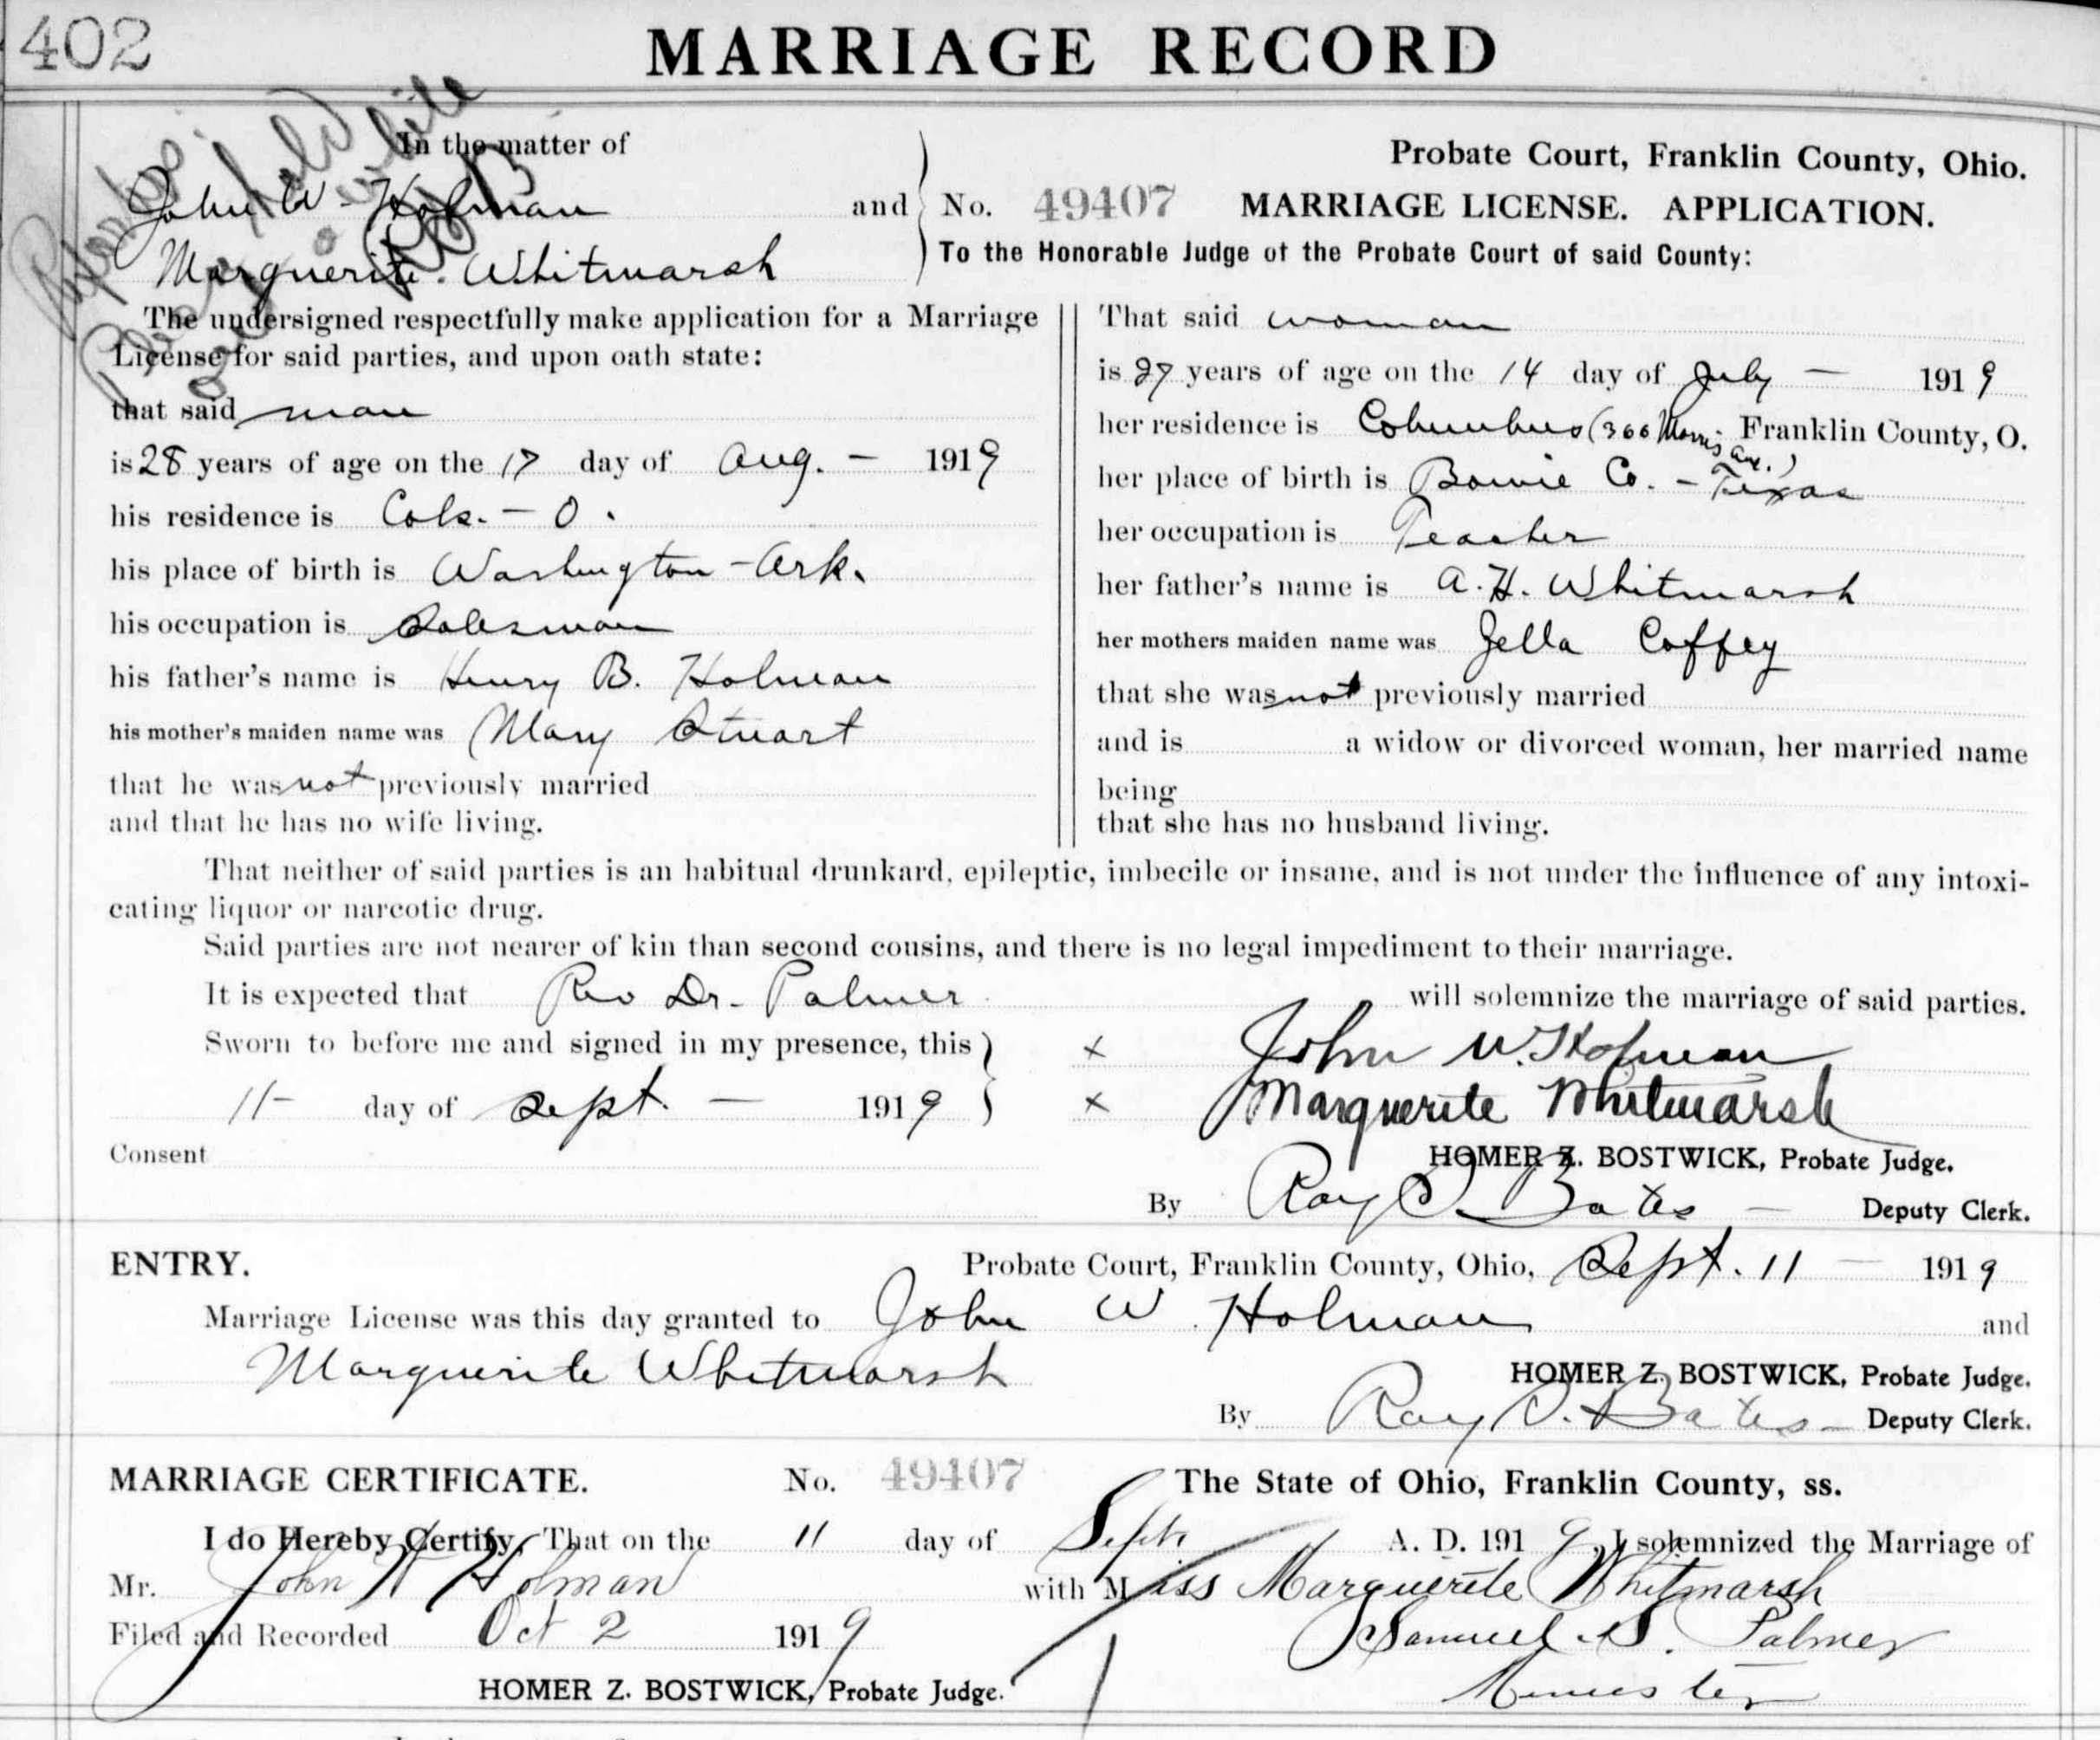 402
MARRIAGE RECORD
Reporters:
Please hold
for a while
In the matter of
John W. Holman and
Marguerite Whitmarsh
Probate Court, Franklin County, Ohio.
No. 49407 MARRIAGE LICENSE. APPLICATION.
To the Honorable Judge of the Probate Court of said County:
The undersigned respectfully make application for a Marriage
License for said parties, and upon oath state:
that said man
is 28 years of age on the 17 day of Aug. - 1919
his residence is Cols. - O.
his place of birth is Washington - Ark.
his occupation is Salesman
his father's name is Henry B. Holman
his mother's maiden name was Mary Stuart
that he was not previously married
and that he has no wife living.
That said woman
is 27 years of age on the 14 day of July - 1919
her residence is Columbus (366 Morris Ave.) Franklin County, O.
her place of birth is Bowie Co. - Texas
her occupation is Teacher
her father's name is A. H. Whitmarsh
her mothers maiden name was Zella Coffey
that she was not previously married
and is a widow or divorced woman, her married name
being
that she has no husband living.
That neither of said parties is an habitual drunkard, epileptic, imbecile or insane, and is not under the influence of any intoxi-
cating liquor or narcotic drug.
Said parties are not nearer of kin than second cousins, and there is no legal impediment to their marriage.
It is expected that Rev Dr. Palmer will solemnize the marriage of said parties.
Sworn to before me and signed in my presence, this
11- day of Sept. - 1919
x John W. Holman
x Marguerite Whitmarsh
Consent
HOMER Z. BOSTWICK, Probate Judge.
By Ray O. Bates - Deputy Clerk.
ENTRY. Probate Court, Franklin County, Ohio, Sept. 11 - 1919
Marriage License was this day granted to John W. Holman and
Marguerite Whitmarsh
HOMER Z. BOSTWICK, Probate Judge.
By Ray O. Bates - Deputy Clerk.
MARRIAGE CERTIFICATE. No. 49407 The State of Ohio, Franklin County, ss.
I do Hereby Certify, That on the 11 day of Sept. A. D. 1919, I solemnized the Marriage of
Mr. John W Holman with Miss Marguerite Whitmarsh
Filed and Recorded Oct 2 1919 Samuel S. Palmer
HOMER Z. BOSTWICK, Probate Judge. Minister